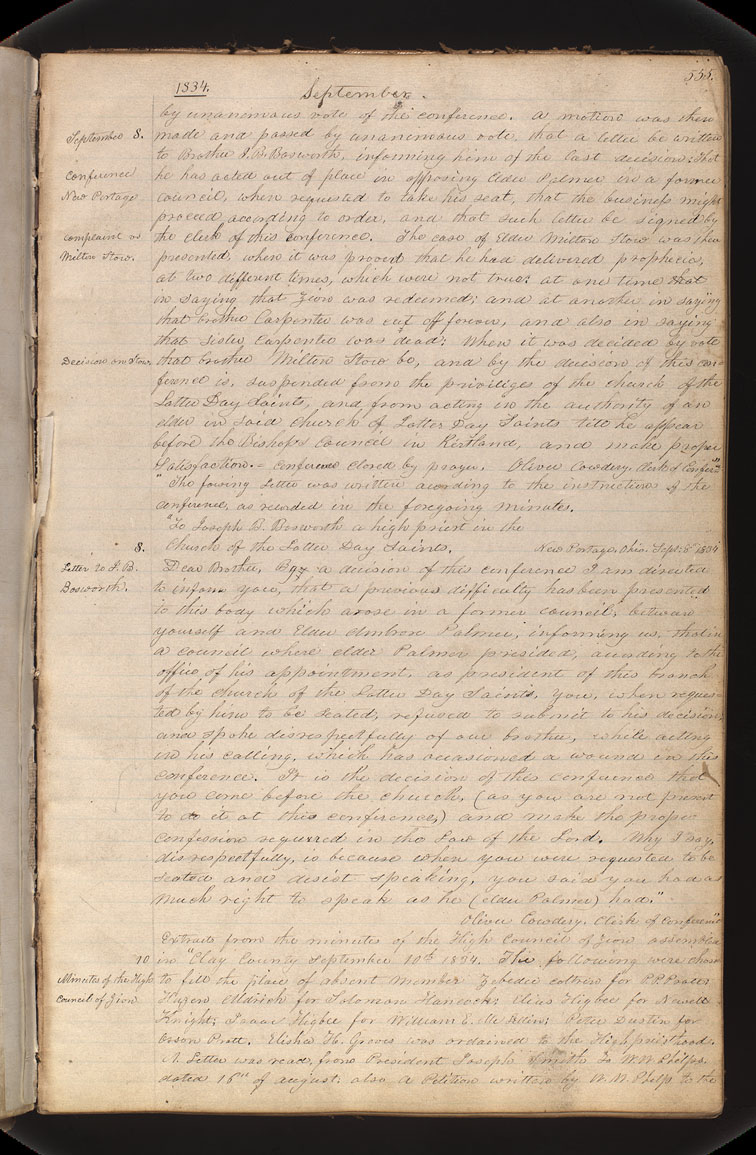 1834.
September.
555.
by unanemous vote of the conference. a motion was then
September 8.
made and passed by unanemous vote, that a letter be written
to Brother J. B. Bosworth, informing him of the last decision; that
conference
he has acted out of place in opposing Elder Palmer in a former
New Portage
council, when requested to take his seat, that the business might
proceed according to order, and that such letter be signed by
complaint vs
the clerk of this conference. The case of Elder Milton Stow was then
Milton Stow.
presented, when it was provent that he had delivered prophecies,
at two different times, which were not true: at one time that
in saying that Zion was redeemed; and at another in saying
that brother Carpenter was cut off forever, and also in saying
that sister Carpenter was dead: When it was decided by vote
Decision on Stow.
that brother Milton Stow be, and by the decision of this con
ference is, suspended from the priviliges of the church of the
Latter Day Saints, and from acting in the authority of an
elder in said church of Latter Day Saints till he appear
before the Bishop's council in Kirtland, and make proper
satisfaction. - conference closed by prayer. Oliver Cowdery, clerk of Confer.
"The fowing letter was written acording to the instructions of the
conference, as recorded in the foregoing minutes.
"To Joseph B. Bosworth a high priest in the
8.
church of the Latter Day Saints.
New Portage, Ohio. Sept. 8th 1834
Letter to J. B.
Dear Brother, By a decision of this conference I am directed
Bosworth.
to inform you, that a previous difficulty has been presented
to this body which arose in a former council, between
yourself and Elder Ambrose Palmer, informing us, that in
a council where elder Palmer presided, acording to the
office of his appointment, as president of this branch
of the church of the Latter Day Saints, you, when reques
ted by him to be seated, refused to submit to his decision,
and spoke disrespectfully of our brother, while acting
in his calling, which has occasioned a wound in this
conference. It is the decision of this conference that
you come before the church, (as you are not present
to do it at this conference,) and make the proper
confession required in the Law of the Lord. Why I say,
disrespectfully, is because when you were requested to be
seated and desist speaking, you said you had as
much right to speak as he (elder Palmer) had."
Oliver Cowdery. Clerk of Conference
Extracts from the minutes of the High Council of Zion assembled
10
in Clay County September 10th 1834. The following were chosen
Minutes of the High
to fill the place of absent member Zebedee Coltrin for P. P. Pratt;
Council of Zion.
Hazen Aldrich for Solomon Hancock; Elias Higbee for Newell
Knight; Isaac Higbee for William E. Mc Lellin; Peter Dustin for
Orson Pratt. Elisha H. Groves was ordained to the High priesthood.
A Letter was read, from President Joseph Smith to W. W. Phelps.
dated 16th of august: also a Petition written by W. W. Phelps to the